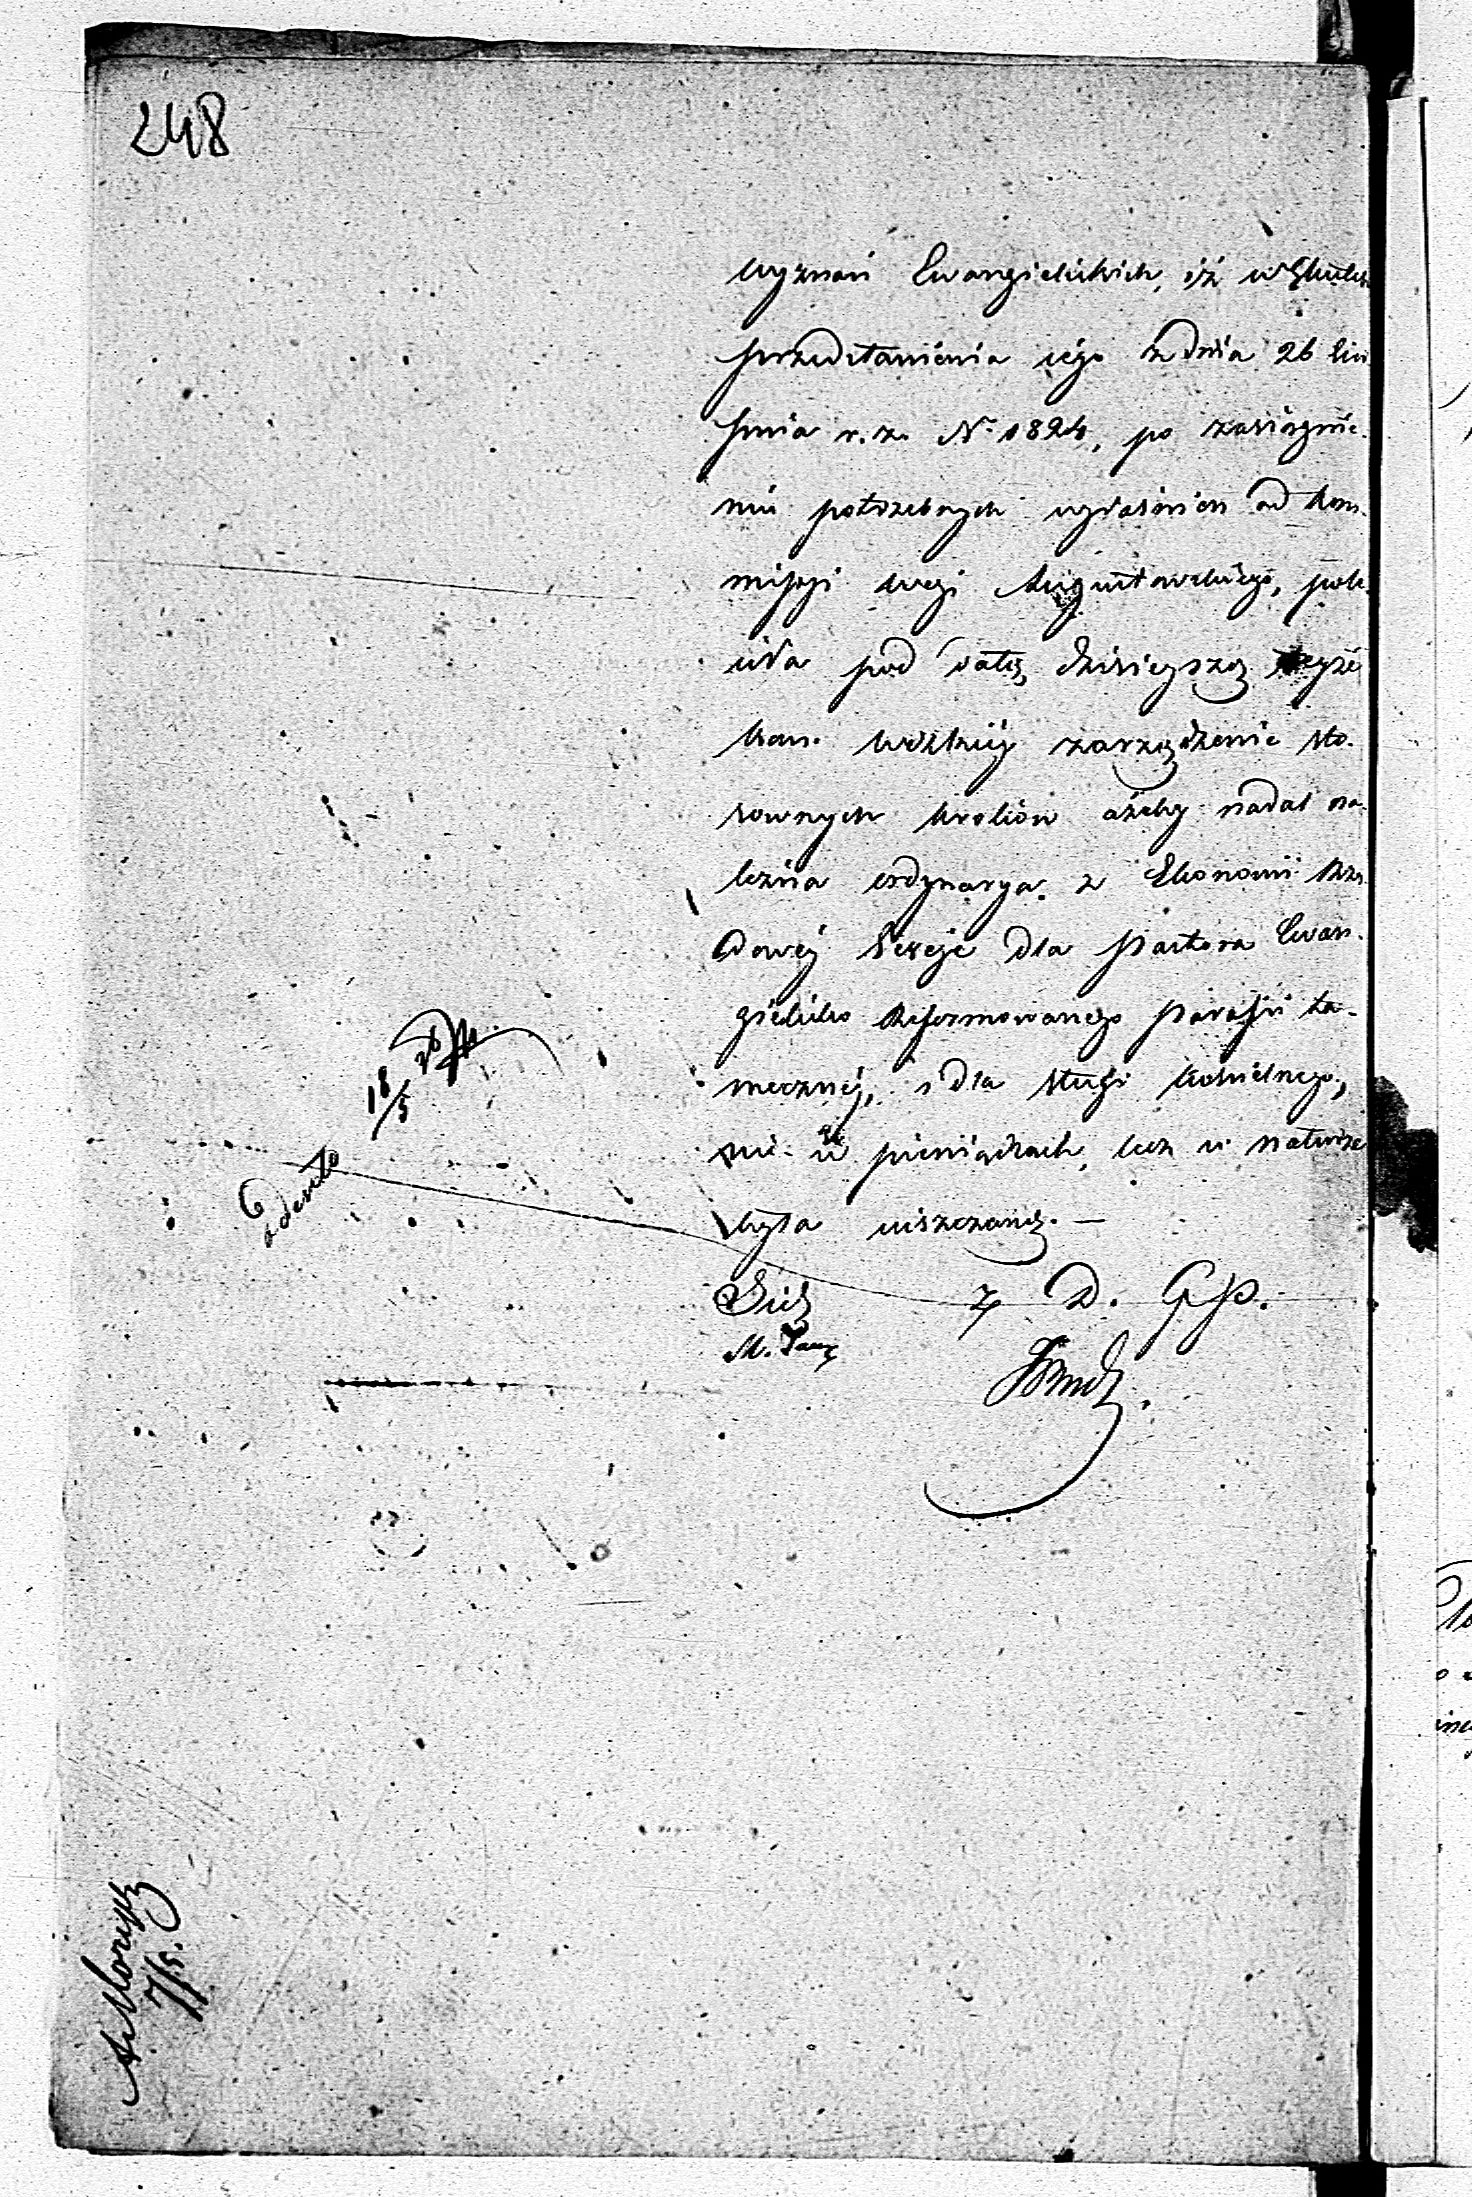 248
wyznań Ewangielickich, iż w skutek
przedstawienia iego z dnia 26 Sier
pnia r. z. N. 1824, po zasiągnie-
niu potrzebnych wyiaśnień od Kom-
missyi Augustowskiego, pole
ciła pod datą dzisieyszą teyże
Kom. Wdzkiéy zarządzenie sto-
sownych kroków ażeby nadal na-
leżna ordynarya z Ekonomii Rzą
dowéy Sereje dla Pastora Ewan-
gielicko Reformowanego Parafii ta-
mecznéy, i dla sługi kościelnego,
nie w pieniądzach, lecz w naturze
była uiszczaną. —
z D. G. P.
18/5
7/5.